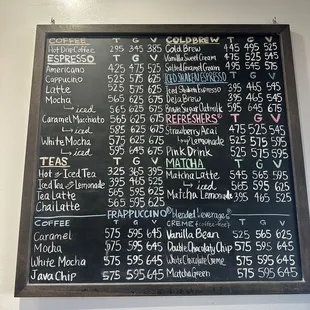 COFFEE T G V
Hot Drip Coffee 295 345 385
ESPRESSO T G V
Americano 425 475 525
Cappucino 525 575 625
Latte 525 575 625
Mocha 565 625 675
iced 585 625 675
Caramel Macchiato 565 625 675
iced 585 625 675
White Mocha 575 625 675
iced 595 645 675
TEAS T G V
Hot or Iced Tea 325 365 395
Iced Tea Lemonade 395 395 465
Tea Latte 565 595 625
Chai Latte 565 595 625
COLD BREW T G V
Cold Brew 445 495 525
Vanilla Sweet Cream 475 525 545
Salted Caramel Cream 475 525 575
ICED SHAKEN ESPRESSO T G V
Iced Shaken Espresso 395 465 545
Deja Brew 395 465 545
Brown Sugar Oatmilk 595 645 675
REFRESHERS T G V
Strawberry Acai 475 525 545
Lemonade 525 575 595
Pink Drink 525 575 595
MATCHA T G V
Matcha Latte 545 565 595
iced 565 595 625
Matcha Lemonade 395 465 525
FRAPPUCCINO blended beverages
COFFEE T G V
Caramel 575 595 645
Mocha 575 595 645
White Mocha 575 595 645
Java Chip 575 595 645
CREME (coffee-free) T G V
Vanilla Bean 525 565 625
Double Chocolaty Chip 575 595 645
White Chocolate Creme 575 595 645
Matcha Green 575 595 645